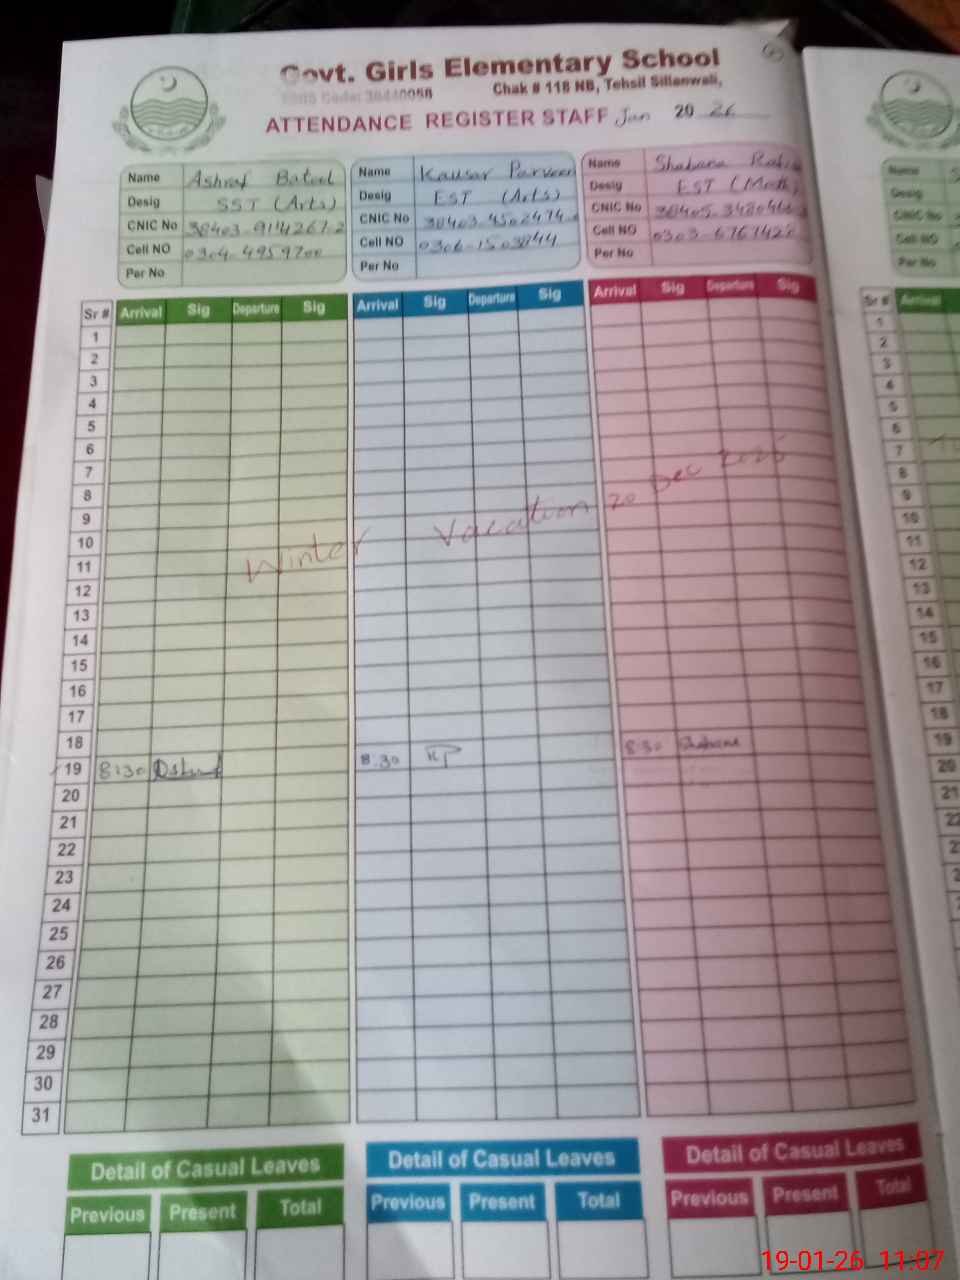 Govt. Girls Elementary School
Chak # 118 NB, Tehsil Sillanwali,
ATTENDANCE REGISTER STAFF Jan 2026
Name Ashraf Batool
Desig SST (Arts)
CNIC No 38403-9114267-2
Cell NO 0304-4959700
Per No
Name Kausar Parveen
Desig EST (Arts)
CNIC No
Cell NO
Per No
Name Shabana
Desig EST (Math)
CNIC No
Cell NO
Per No
Sr # Arrival Sig Departure Sig Arrival Sig Departure Sig Arrival Sig Departure Sig
1
2
3
4
5
6
7
8
9
10
11
12
13
14
15
16
17
18
19 8:30 8:30 KP 8:30 Shabana
20
21
22
23
24
25
26
27
28
29
30
31
Winter Vacation 20 Dec 2025
Detail of Casual Leaves Detail of Casual Leaves Detail of Casual Leaves
Previous Present Total Previous Present Total Previous Present Total
Sr #
1
2
3
4
5
6
7
8
9
10
11
12
13
14
15
16
17
18
19
20
21
19-01-26 11:07